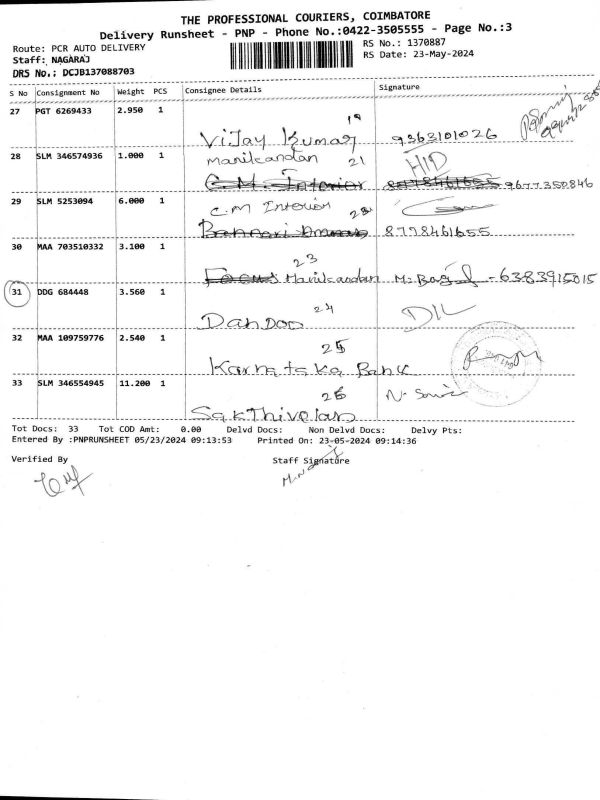 THE PROFESSIONAL COURIERS, COIMBATORE
Delivery Runsheet - PNP - Phone No.:0422-3505555 - Page No.:3
Route: PCR AUTO DELIVERY
RS No.: 1370887
Staff: NAGARAJ
RS Date: 23-May-2024
DRS No.: DCJB137088703
S No Consignment No Weight PCS Consignee Details Signature
27 PGT 6269433 2.950 1
19
Vijay Kumar 9363101026
28 SLM 346574936 1.000 1 Manikandan 21 HID
C.M. Interior 8778461655 9677350846
29 SLM 5253094 6.000 1 C.M Interior 22
Bannari Amman 8778461655
30 MAA 703510332 3.100 1
23
Focus Manikandan M. - 6383915015
31 DDG 684448 3.560 1
24 DIL
Dandoo
32 MAA 109759776 2.540 1
25
Karnataka Bank
33 SLM 346554945 11.200 1
26
Sakthivelan
Tot Docs: 33 Tot COD Amt: 0.00 Delvd Docs: Non Delvd Docs: Delvy Pts:
Entered By :PNPRUNSHEET 05/23/2024 09:13:53 Printed On: 23-05-2024 09:14:36
Verified By Staff Signature